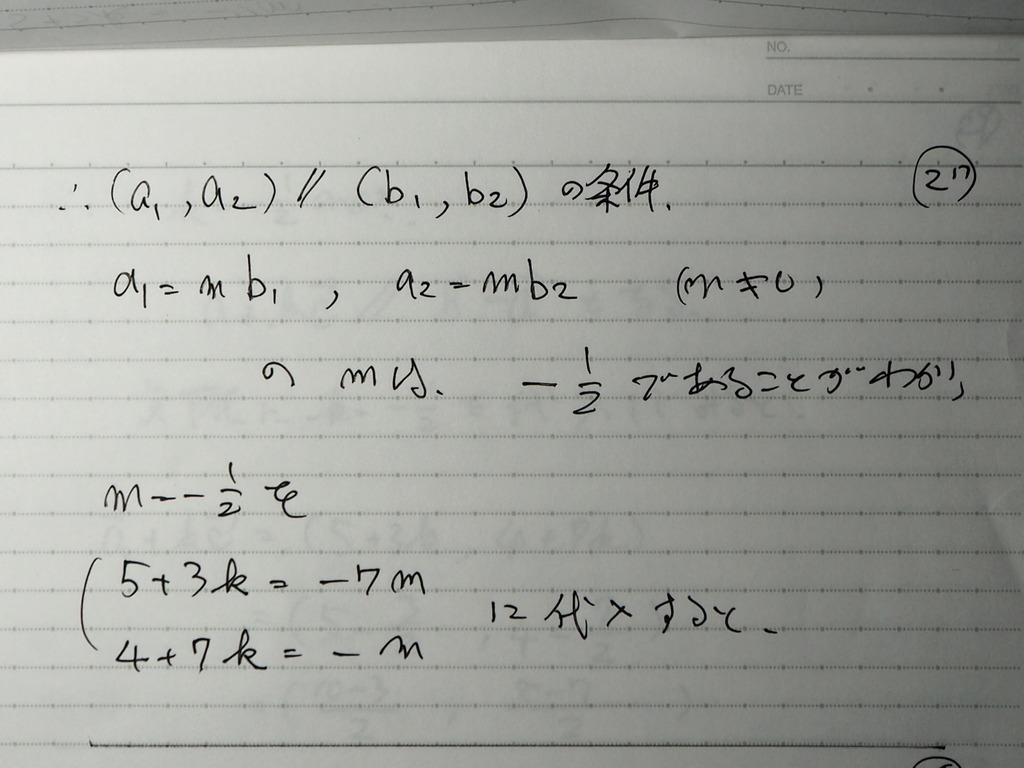 NO.
DATE
∴ (a₁, a₂) // (b₁, b₂) の条件.
a₁ = m b₁ , a₂ = m b₂ (m ≠ 0)
の mは. - 1/2 であることがわかり,
m = - 1/2 を
5 + 3k = - 7m
4 + 7k = - m
に代入すると.